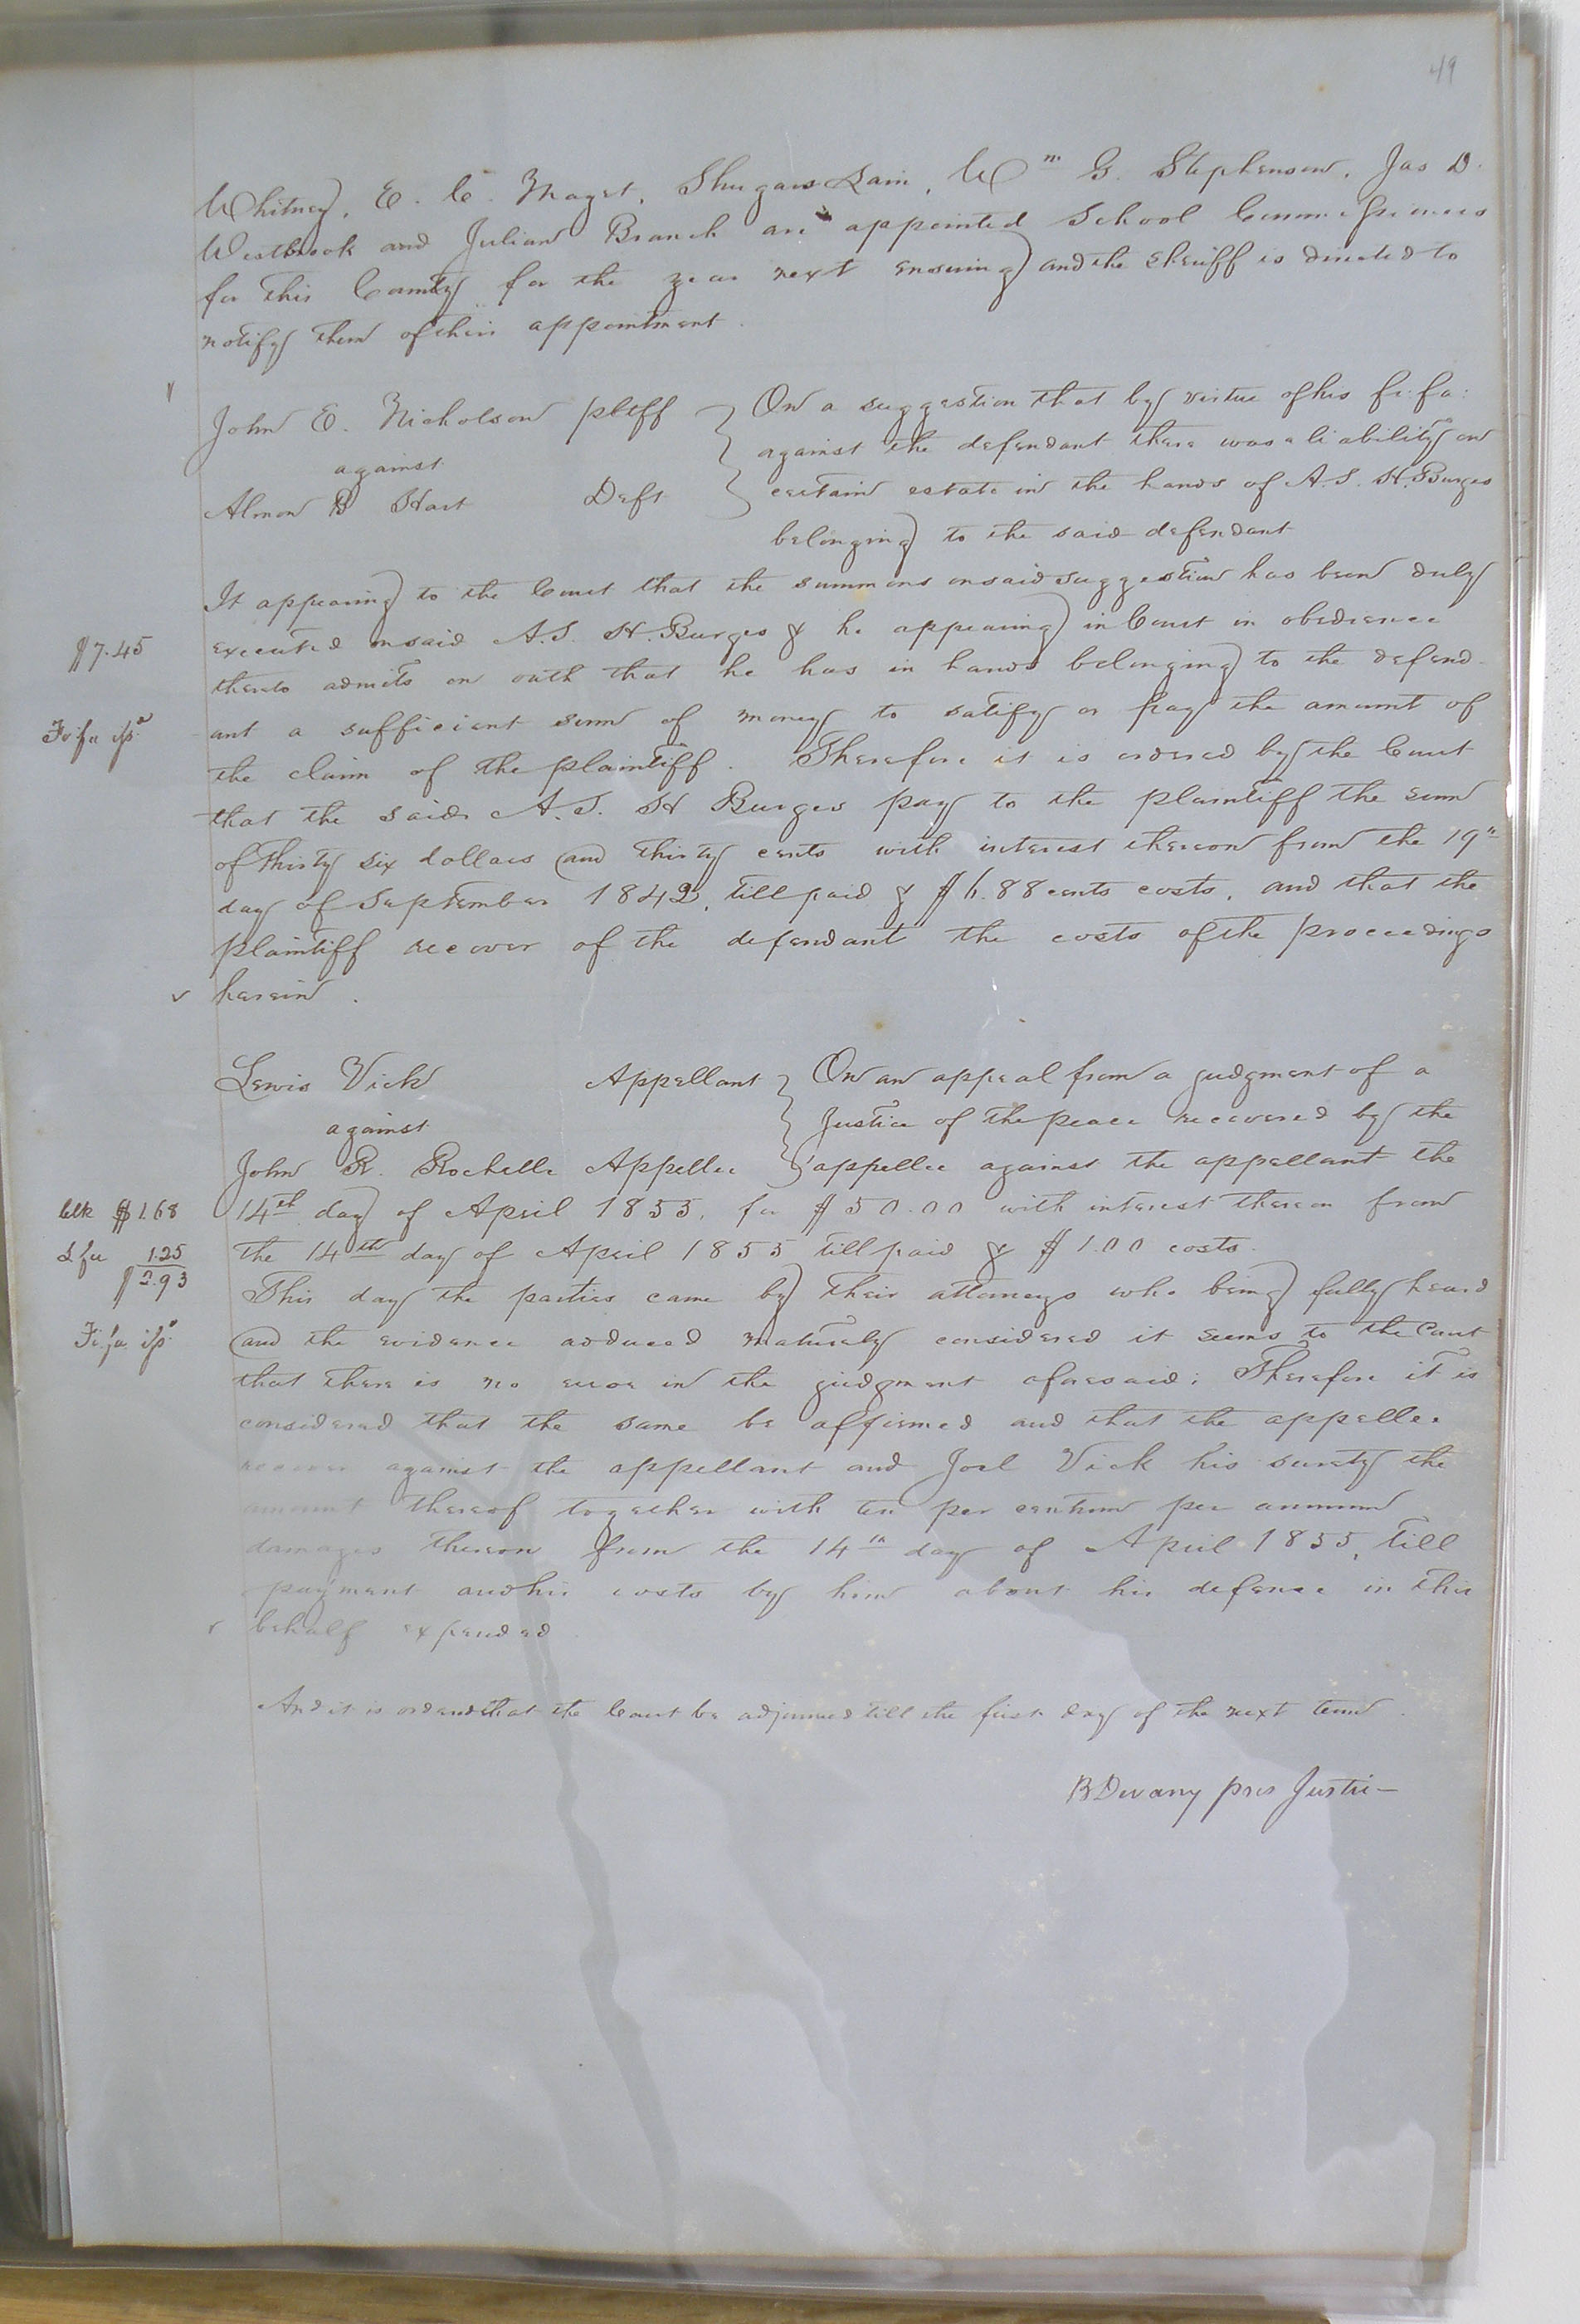 49
Whitney, E. C. Maget, Shugars Lain, Wm G. Stephenson, Jas D.
Westbrook and Julian Branch are appointed School Commissioners
for this County for the year next ensuing and the Sheriff is directed to
notify them of their appointment.
John E. Nicholson pltff
against
Almon B Hart Deft
On a suggestion that by virtue of his fi. fa.
against the defendant there was a liability on
certain estate in the hands of A. S. H. Burges
belonging to the said defendant
It appearing to the Court that the summons on said suggestion has been duly
$7.45 executed on said A. S. H. Burges & he appearing in Court in obedience
thereto admits on oath that he has in hands belonging to the defend-
Fi fa isd ant a sufficient sum of money to satify or pay the amount of
the claim of the plaintiff. Therefore it is ordered by the Court
that the said A. S. H Burges pay to the plaintiff the sum
of thirty six dollars and thirty cents with interest thereon from the 19th
day of September 1842, till paid & $6.88 cents costs, and that the
plaintiff recover of the defendant the costs of the proceedings
herein.
Lewis Vick Appellant
against
John R. Rochelle Appellee
On an appeal from a judgment of a
Justice of the peace recovered by the
appellee against the appellant the
Clk $1.68 14th day of April 1855, for $50.00 with interest thereon from
S.fu 1.25 the 14th day of April 1855 till paid & $1.00 costs.
$2.93
This day the parties came by their attorneys who being fully heard
Fi. fa isd and the evidence adduced maturely considered it seems to the Court
that there is no error in the judgment aforesaid: Therefore it is
considered that the same be affirmed and that the appellee
recover against the appellant and Joel Vick his surety the
amount thereof together with ten per centum per annum
damages thereon from the 14th day of April 1855, till
payment and his costs by him about his defence in this
behalf expended
And it is ordered that the Court be adjourned till the first day of the next term.
B Devany pres Justice